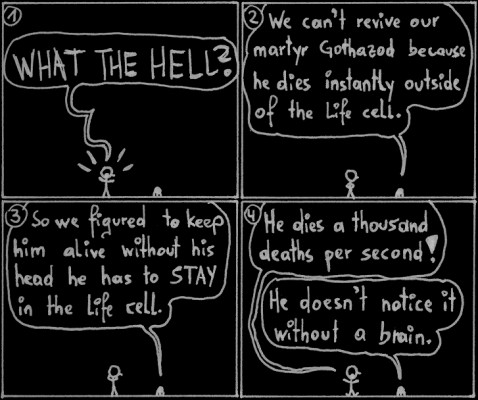 1
WHAT THE HELL?
2
We can't revive our
martyr Gothazod because
he dies instantly outside
of the Life cell.
3
So we figured to keep
him alive without his
head he has to STAY
in the Life cell.
4
He dies a thousand
deaths per second!
He doesn't notice it
without a brain.